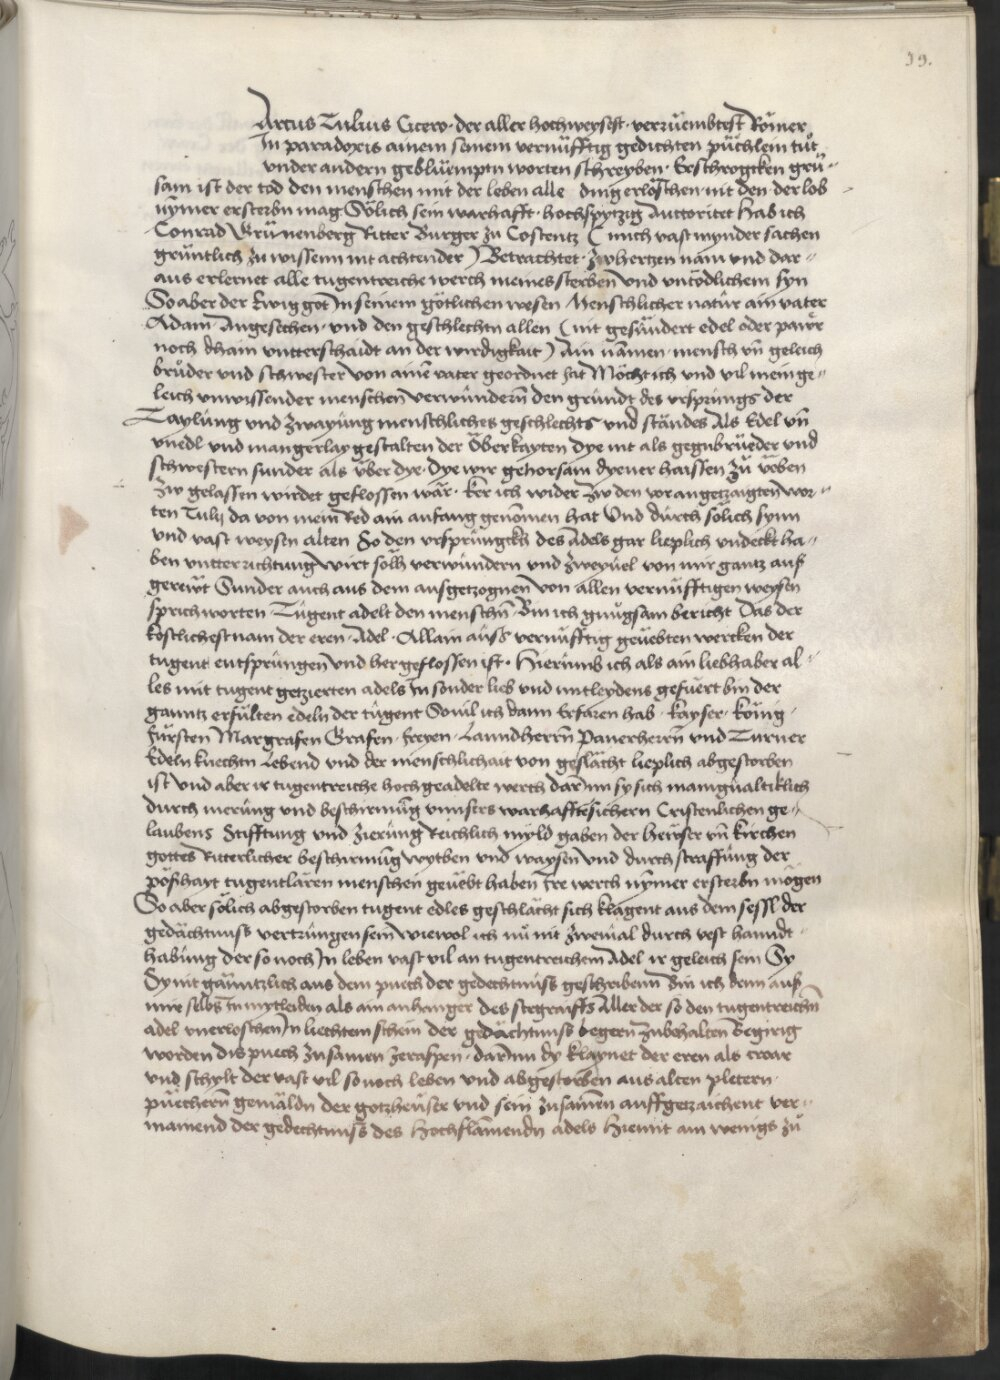 39.
Arcus Tulius Cicero · der aller hochweysest · verrüembtest Römer
In paradoxis ainem seinem vernüfftig gedichten püchlein tüt
vnder andern geblüempten worten schreyben · Erschrogcken grü-
sam ist der tod den menschen mit der leben alle ding erlöschen · nit den der lob
nymer ersterbn mag Sölich sein warhafft · hochspytzig Auttoritet Hab ich
Conrad Grünenberg Ritter Burger zu Costentz ( mich vast mynder sachen
grüntlich zu wissenn nit achtender ) Betrachtet · zw hertzen nam vnd dar-
aus erlernet alle tugentreiche werch meines sterben vnd vntödlichem syn
So aber der Ewig got In seinem götlichen wesen Menschlicher natur ain vater
Adam Angesechen · vnd den geschlechtn allen ( nit gesündert edel oder pawr
noch dhain vntterschaidt an der wirdigkait ) Ain namen · mensch vn̄ geleich
brüder vnd schwester von aine vater geordnet hat Möcht ich vnd vil mein ge-
leich vnwissender menschen verwündern den gründt des vrsprüngs der
Taylüng vnd Zwayüng menschliches geschlechts vnd ständes Als Edel vn̄
vnedl vnd mangerlay gestalten der Überkayten dye nit als gegnbrüeder vnd
schwestern sunder als über dye · dye wir gehorsam dyener haissen zü üeben
zw gelassen wirdet geflossen wär · Ker ich wider zw den vor angetzaigten wor-
ten Tulij da von mein Red ain anfang genomen hat Vnd dürch sölich synn
vnd vast weysen alten So den vrsprüngckh des Adels gar lieplich vndeckt ha-
ben vntterrichtung wirt sölh verwündern vnd zweyuel von mir gantz auf
gerewt Sunder auch aus dem aufgetzognen von allen vernüfftigen weysen
sprichworten Tügent adelt den menschn̄ Bin ich gnügsam bericht Das der
kostlichest nam der eren · Adel · Allain auss vernüfftig geüebten wercken der
tugent entsprüngen vnd her geflossen ist · Hierümb ich als ain liebhaber al-
les mit tugent getzierten adels In sonder lieb vnd mitleydens gefüert bin der
ganntz erfülten edeln der tügent Souil ich dann Erfaren hab · kayser · könig ·
fürsten Margrafen Grafen · freyen · Lanndherrn Panerherrn vnd Turner
Edeln knechtn Lebend vnd der menschlichait von geslächt lieplich abgestorben
ist vnd aber ir tugentreiche hoch geadelte werch darinn sy sich manigualtiklich
durch merüng vnd beschirmüng vnnsers warhafftesichern Cristenlichen ge-
laubens Stifftung vnd zierüng Reichlich myld gaben der hewser vn̄ kirchen
gottes Ritterlicher beschirmüng wytben vnd waysen vnd durch straffüng der
pösshayt tugentlären menschen geüebt haben Ire werch nymer ersterbn mögen
So aber sölich abgestorben tugent edles geschlächt sich klagent aus dem sessl der
gedächtnuss vertrüngen sein wiewol ich nü nit zweiual durch vest hanndt-
habüng der so noch In leben vast vil an tugentreichem Adel ir geleich sein Sy
Sy nit gäntzlich aus dem puech der gedechtnüss geschribenn Bin ich denn auss
mir selbs In mytleiden als ain anhenger des stegraiffs Aller der so den tugentreichn̄
adel vnerloschen In liechtem schein der gedächtnuss begern zubehalten Begirig
worden dis puech zusamen zeraspen · darInn dy klaynet der eren als
vnd schylt der vast vil so noch leben vnd abgestorben aus alten pletern ·
püechern gemäldn der gotzheüser vnd sein zusamen auffgetzaichent ver-
mainend der gedechtnuss des Hochflamendn adels Hiemit ain wenigs zü